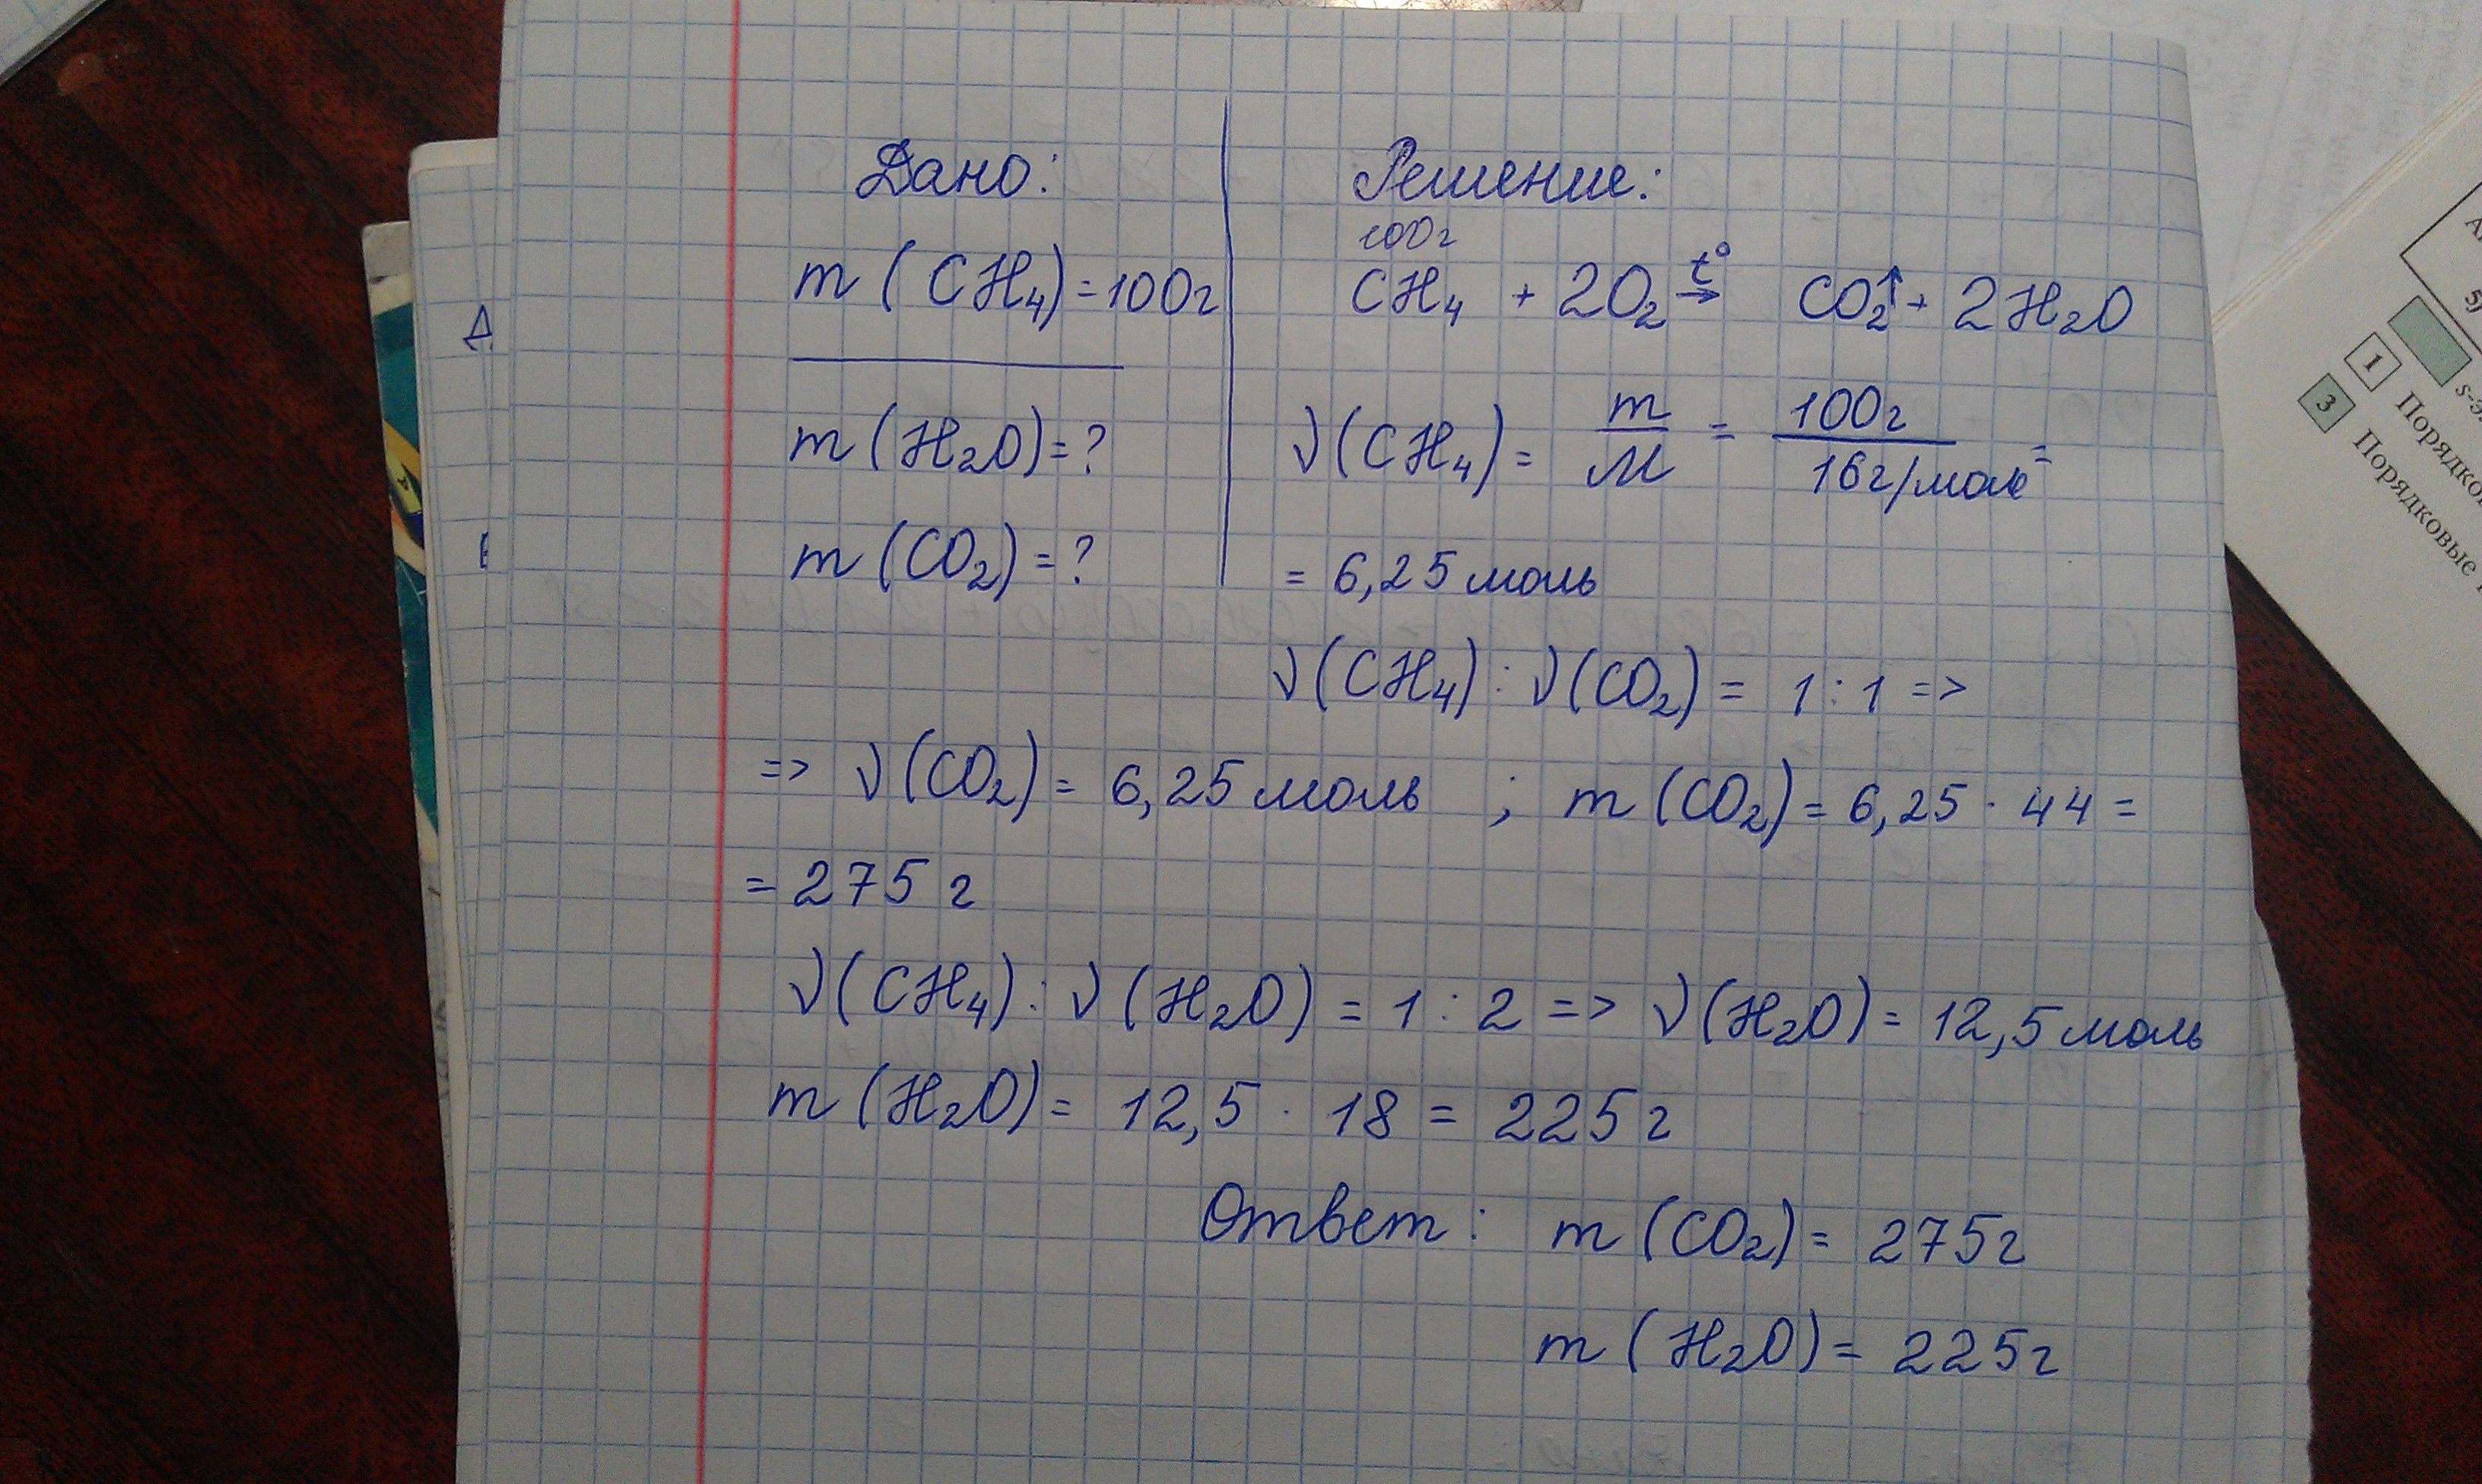 Дано:
m (CH₄) = 100г
m (H₂O) = ?
m (CO₂) = ?
Решение:
100г
CH₄ + 2O₂ t° → CO₂↑ + 2H₂O
ν(CH₄) = m/M = 100г/16г/моль =
= 6,25 моль
ν(CH₄) : ν(CO₂) = 1 : 1 =>
=> ν(CO₂) = 6,25 моль ; m (CO₂) = 6,25 · 44 =
= 275 г
ν(CH₄) : ν(H₂O) = 1 : 2 => ν(H₂O) = 12,5 моль
m (H₂O) = 12,5 · 18 = 225 г
Ответ: m (CO₂) = 275г
m (H₂O) = 225г
5)
s-э
1 Порядко
3 Порядковые